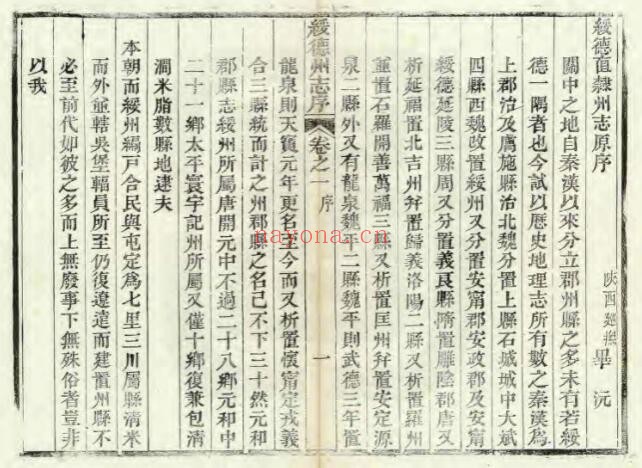 綏德直隸州志原序
陝西廵撫畢沅
關中之地自秦漢以來分立郡州縣之多未有若綏
德一隅者也今試以歷史地理志所有數之秦漢爲
上郡治及膚施縣治北魏分置上縣石城城中大斌
四縣西魏改置綏州又分置安甯郡安政郡及安甯
綏德延陵三縣周又分置義良縣隋置雕陰郡唐又
析延福置北吉州幷置歸義洛陽二縣又析置羅州
幷置石羅開善萬福三縣又析置匡州幷置安定源
泉二縣外又有龍泉魏平二縣魏平則武德三年置
綏德州志序
卷之一
序
一
龍泉則天寶元年更名至今而又析置懷甯定戎義
合三縣統而計之州郡縣之名已不下三十然元和
郡縣志綏州所屬唐開元中不過二十八鄉元和中
二十一鄉太平寰宇記州所屬又僅十鄉復兼包清
澗米脂數縣地逮夫
本朝而綏州編戶合民與屯定爲七里三川屬縣清米
而外並轄吳堡輻員所至仍復遼遠而建置州縣不
必至前代如彼之多而上無廢事下無殊俗者豈非
以我
nayona.cn